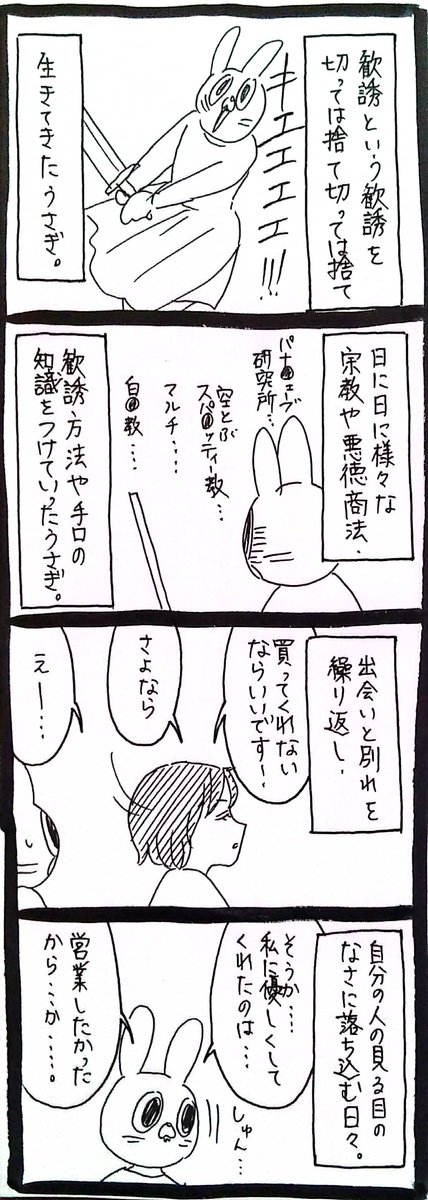 歓誘という歓誘を
切っては捨て切っては捨て
キエエエエエ!!!
生きてきたうさぎ。
日に日に様々な
宗教や悪徳商法.
パナ●ェーブ
研究所…
空とぶ
スパ●ッティー教…
マルチ….
白●教….
歓誘方法や手口の
知識をつけていったうさぎ。
出会いと別れを
繰り返し.
買ってくれない
ならいいです!
さよなら
えー….
自分の人の見る目の
なさに落ち込む日々。
そうか….
私に優しくして
くれたのは…
しゅん…
営業したかった
から…か….。